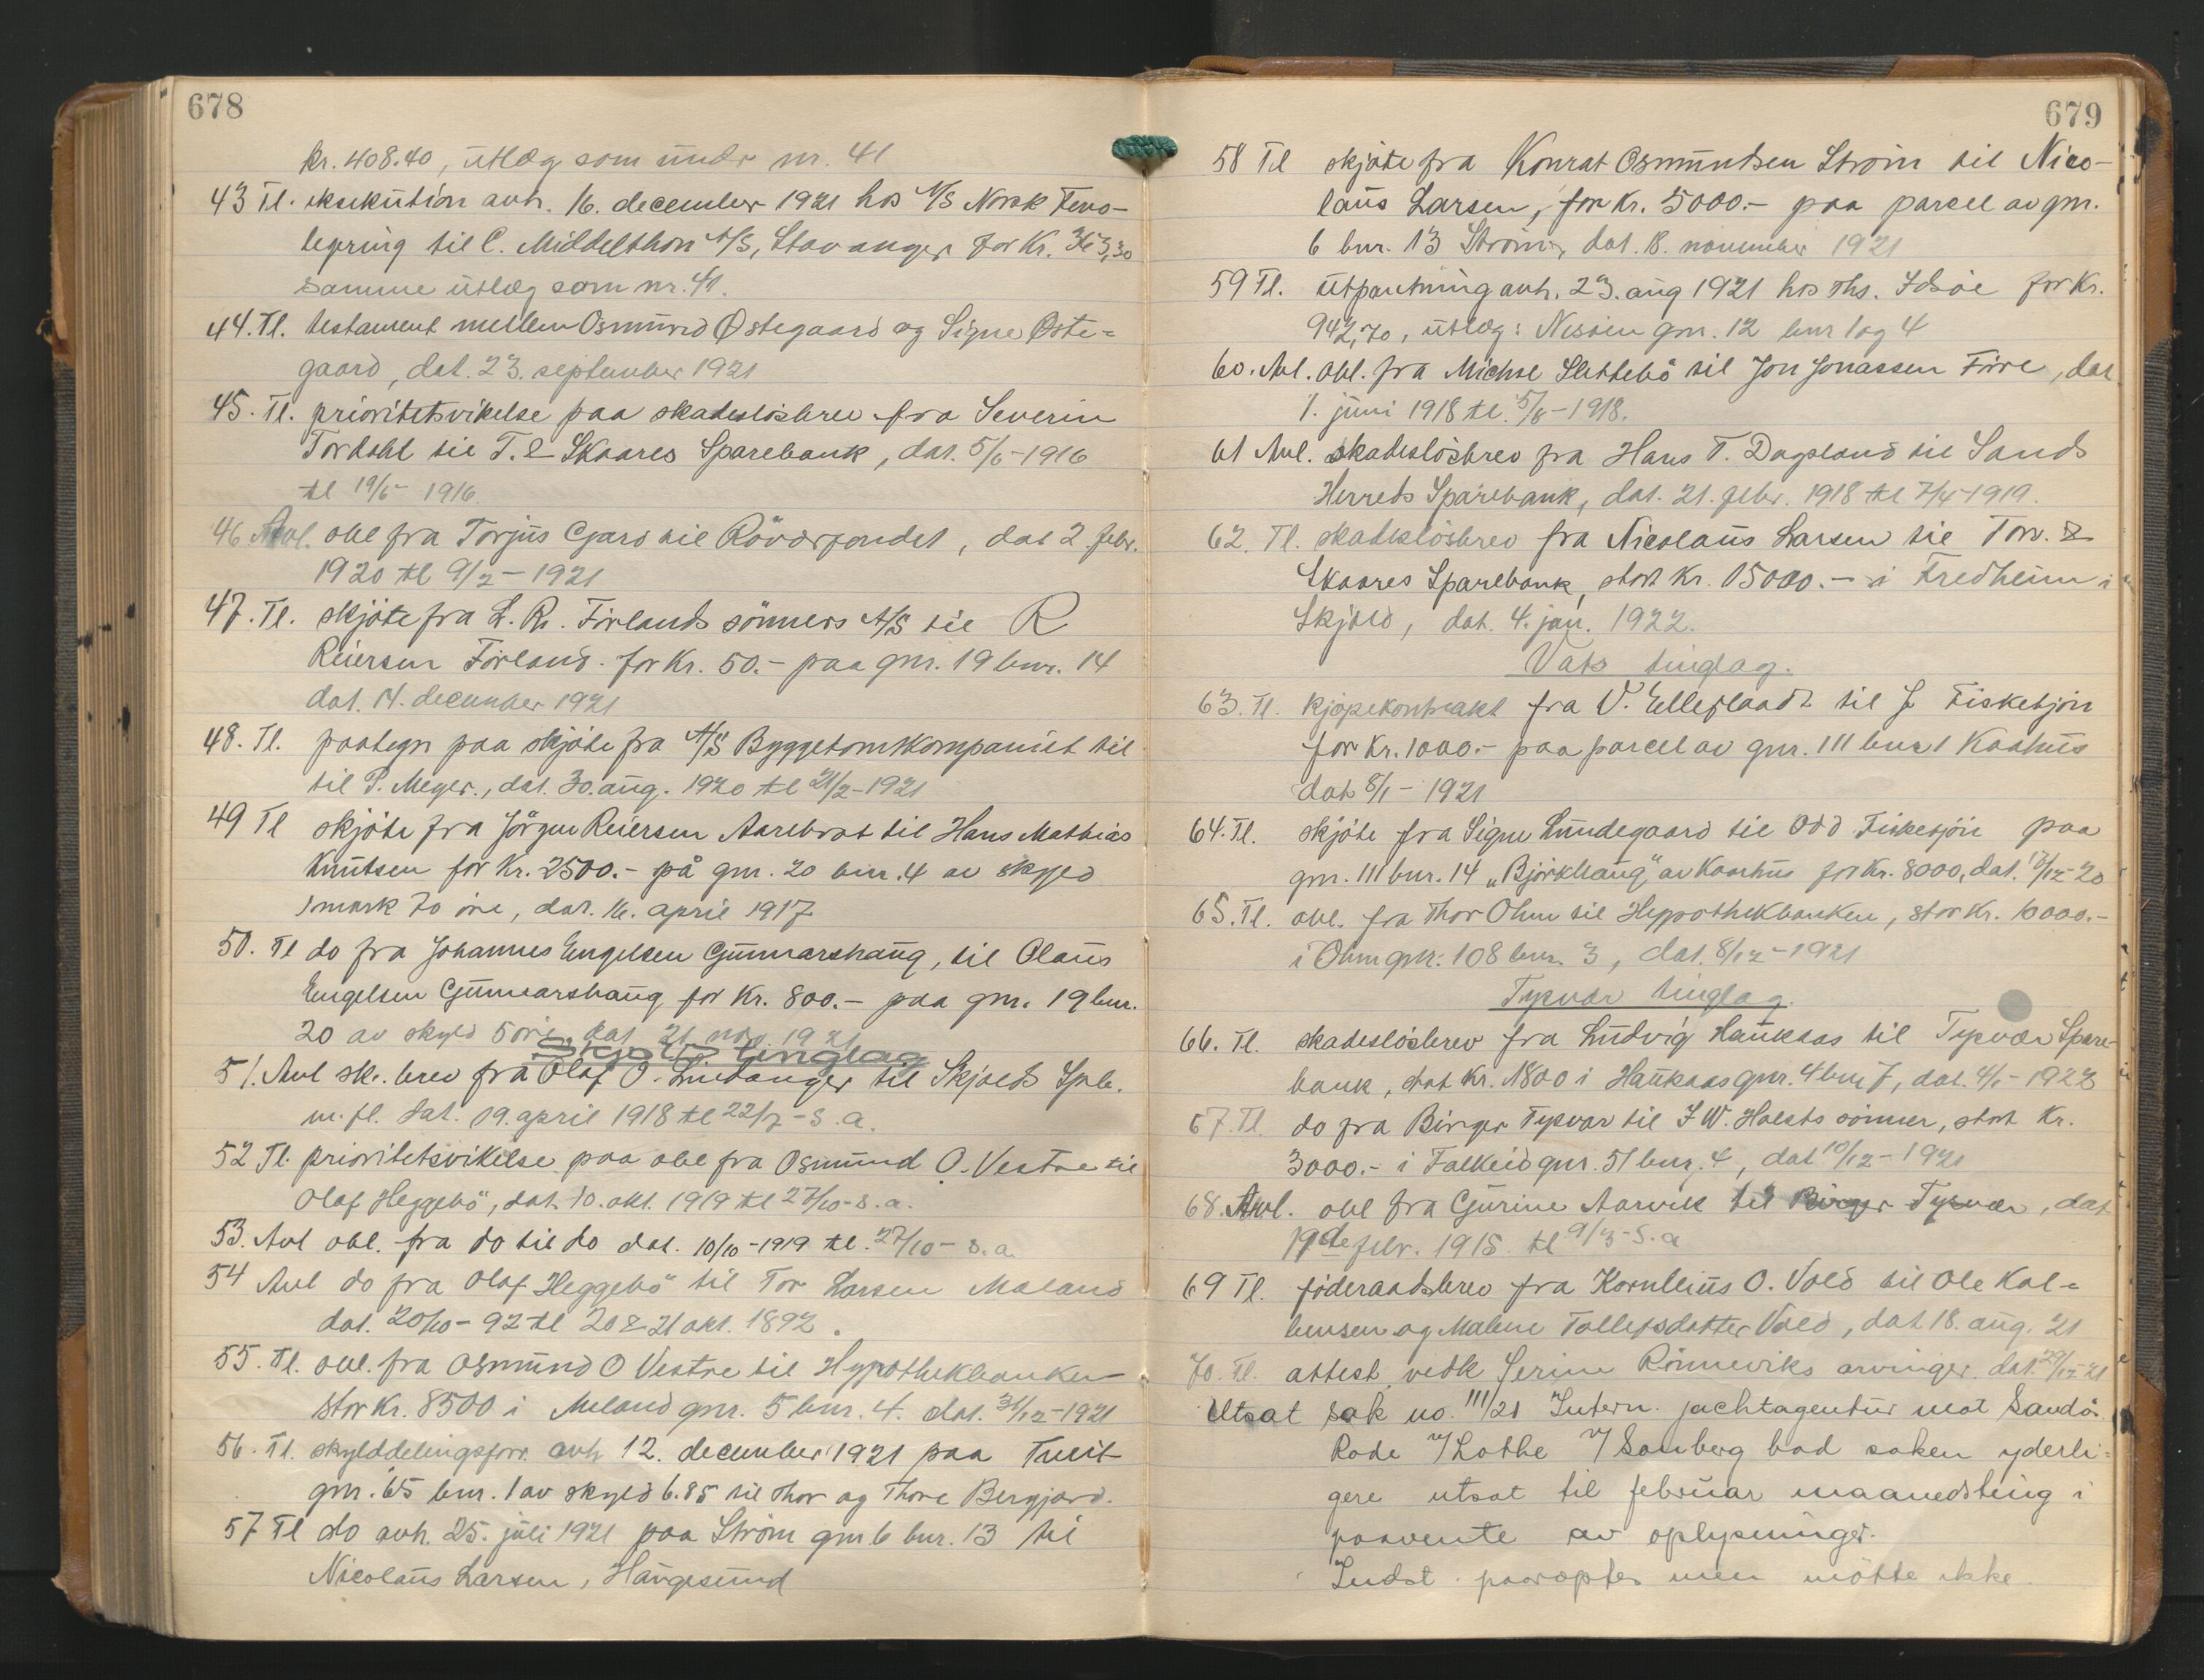 678
kr. 408.40, utlæg som under nr. 41
43 Tl. eksekution avh. 16. december 1921 hos A/S Norsk Ferro-
legering til C. Middelthon A/S, Stavanger for kr.
samme utlæg som nr. 41.
44. Tl. testament mellem Osmund Østegaard og Signe Øste-
gaard, dat. 23. september 1921
45. Tl. prioritetsvikelse paa skadeslösbrev fra Severin
Tordahl til T. & Skaares Sparebank, dat. 5/6-1916
tl 19/6- 1916.
46 Avl. obl fra Torjus Gard til Röværfondet, dat 2. febr.
1920 tl 9/2-1921
47. Tl. skjöte fra L. R. Förlands sönners A/S til R
Reiersen Förland. for kr. 50.- paa gnr. 19 bnr. 14
dat. 14. december 1921
48. Tl. paategn paa skjöte fra A/S Byggetomtkompaniet til
til P. Meyer., dat. 30. aug. 1920 tl 21/2-1921
49 Tl skjöte fra Jörgen Reiersen Aarebrot til Hans Mathias
Knutsen for kr. 2500.- på gnr. 20 bnr. 4 av skyld
1 mark 70 öre, dat. 16. april 1917
50. Tl do fra Johannes Engelsen Gunnarshaug, til Olaus
Engelsen Gunnarshaug for kr. 800.- paa gnr. 19 bnr.
20 av skyld 5 öre, dat 21 nov. 1921
Skjold tinglag
51. Avl sk. brev fra Olaf O. Lindanger til Skjolds Spb.
m. fl. dat. 19. april 1918 tl 22/7-s.a.
52 Tl. prioritetsvikelse paa obl fra Osmund O. Vestre til
Olaf Heggebö, dat. 10. okt. 1919 tl 27/10-s.a.
53. Avl obl. fra do til do dat. 10/10-1919 tl. 27/10-s.a.
54 Avl do fra Olaf Heggebö til Tor Larsen Meland
dat. 20/10-92 tl 20 & 21 okt. 1892.
55. Tl. obl. fra Osmund O Vestre til Hypothekbanken
stor kr. 8500 i Meland gnr. 5 bnr. 4. dat. 31/12-1921
56. Tl. skylddelingsforr. avh 12. december 1921 paa Tveit
gnr. 65 bnr. 1 av skyld 6.85 til Thor og Thore Bergjord.
57 Tl do avh. 25. juli 1921 paa Ström gnr 6 bnr. 13 til
Nicolaus Larsen, Haugesund
679
58 Tl skjöte fra Konrat Osmundsen Ström til Nico-
laus Larsen, for kr. 5000.- paa parcel av gnr.
6 bnr. 13 Ström, dat. 18. november 1921
59 Tl. utpantning avh. 23. aug 1921 hos Ths. Idsöe for kr.
942,70, utlæg: Nesöien gnr. 12 bnr 1 og 4
60. Avl. obl. fra Michal Slettebö til Jon Jonassen Före, dat
1. juni 1918 tl. 5/8-1918.
61 Avl. skadeslösbrev fra Hans T. Dagsland til Sands
Herreds Sparebank, dat. 21. febr. 1918 tl 7/4-1919.
62. Tl. skadeslösbrev fra Nicolaus Larsen til Torv. &
Skaares Sparebank, stort kr. 15000.- i Fredheim i
Skjold, dat. 4. jan. 1922.
Vats tinglag.
63. Tl. kjöpekontrakt fra V. Ellefland til J. Fisketjön
for kr. 1000.- paa parcel av gnr. 111 bnr 1 Kaahus
dat 8/1- 1921
64. Tl. skjöte fra Signe Lundegaard til Odd Fisketjön paa
gnr. 111 bnr. 14 "Björkhaug" av Kaarhus for kr. 8000, dat. 17/12-20
65. Tl. obl. fra Thor Ohm til Hypothekbanken, stor kr. 10000.-
i Ohm gnr. 108 bnr. 3, dat. 8/12-1921
Tysvær tinglag.
66. Tl. skadeslösbrev fra Ludvig Haukaas til Tysvær Spare-
bank, stort kr. 1800 i Haukaas gnr. 4 bnr 7, dat. 4/1-1922
67. Tl. do fra Birger Tysvær til I W. Holsts sönner, stort kr.
3000.- i Falkeid gnr. 51 bnr. 4, dat 10/12-1921
68. Avl. obl fra Gurine Aarvik til Birger Tysvær, dat
19de febr. 1915 tl 9/3-s.a
69 Tl. föderaadsbrev fra Kornelius O. Vold til Ole Kol-
bensen og Malene Tollefsdatter Vold, dat 18. aug. 21
70. Tl. attest vedk Serine Rönneviks arvinger. dat. 29/12-21
Utsat sak no. 111/21 Intern. jachtagentur mot Sandö.
Rode v/ Lothe v/ Sonberg bad saken yderli-
gere utsat til februar maanedsting i
paavente av oplysninger.
Indst. paaroptes men mötte ikke.